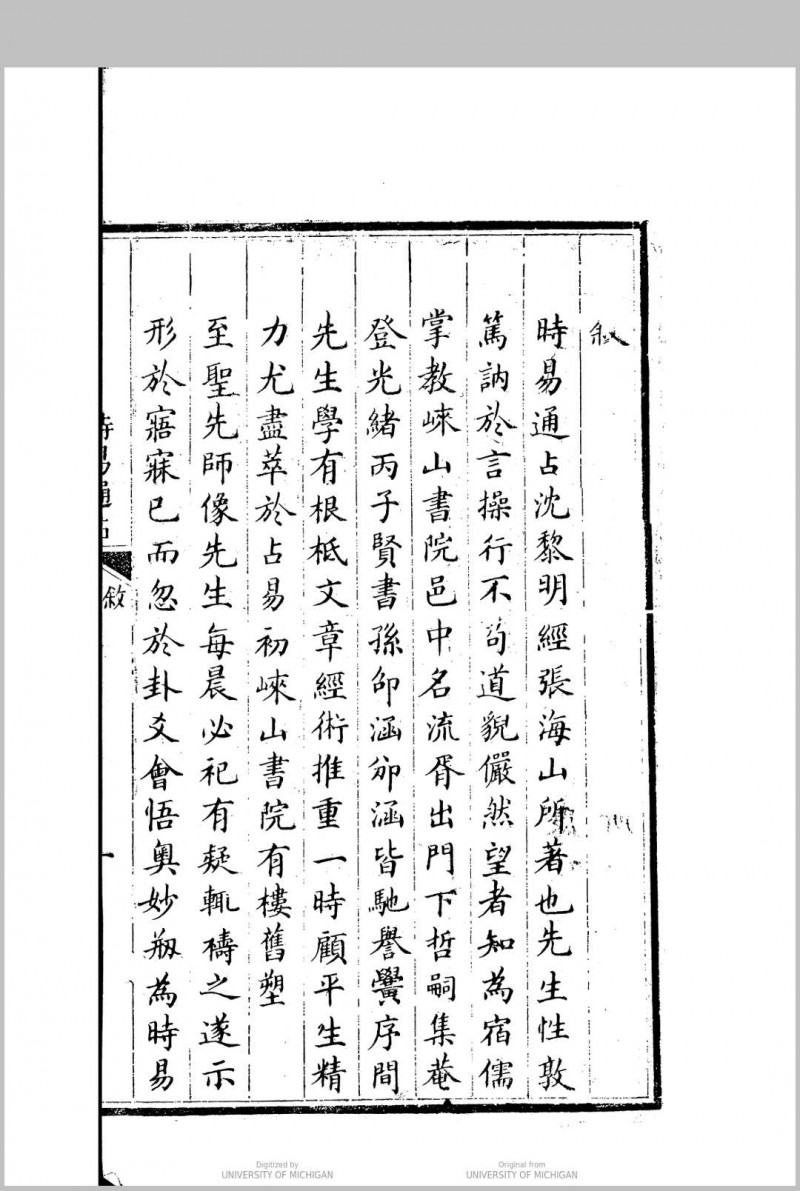 敘
時易通占沈黎明經張海山所著也先生性敦
篤訥於言操行不苟道貌儼然望者知為宿儒
掌教崍山書院邑中名流胥出門下哲嗣集菴
登光緒丙子賢書孫卬涵卯涵皆馳譽黌序間
先生學有根柢文章經術推重一時顧平生精
力尤盡萃於占易初崍山書院有樓舊塑
至聖先師像先生每晨必祀有疑輒禱之遂示
形於寤寐已而忽於卦爻會悟奧妙剏為時易
時易通占
敘
一
Digitized by
UNIVERSITY OF MICHIGAN
Original from
UNIVERSITY OF MICHIGAN